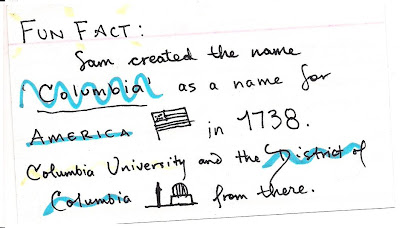 FUN FACT:
Sam created the name
'Columbia' as a name for
AMERICA in 1738.
Columbia University and the District of
Columbia from there.